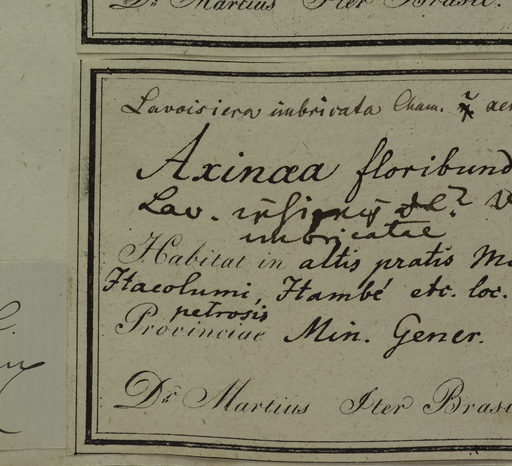 Dr. Martius Iter Brasil.
Lavoisiera imbricata Cham.
Axinæa floribund
Lav. insignis
imbricatae
Habitat in altis pratis M
Itacolumi, Itambé etc. loc.
petrosis
Provinciae Min. Gener.
Dr. Martius Iter Brasi